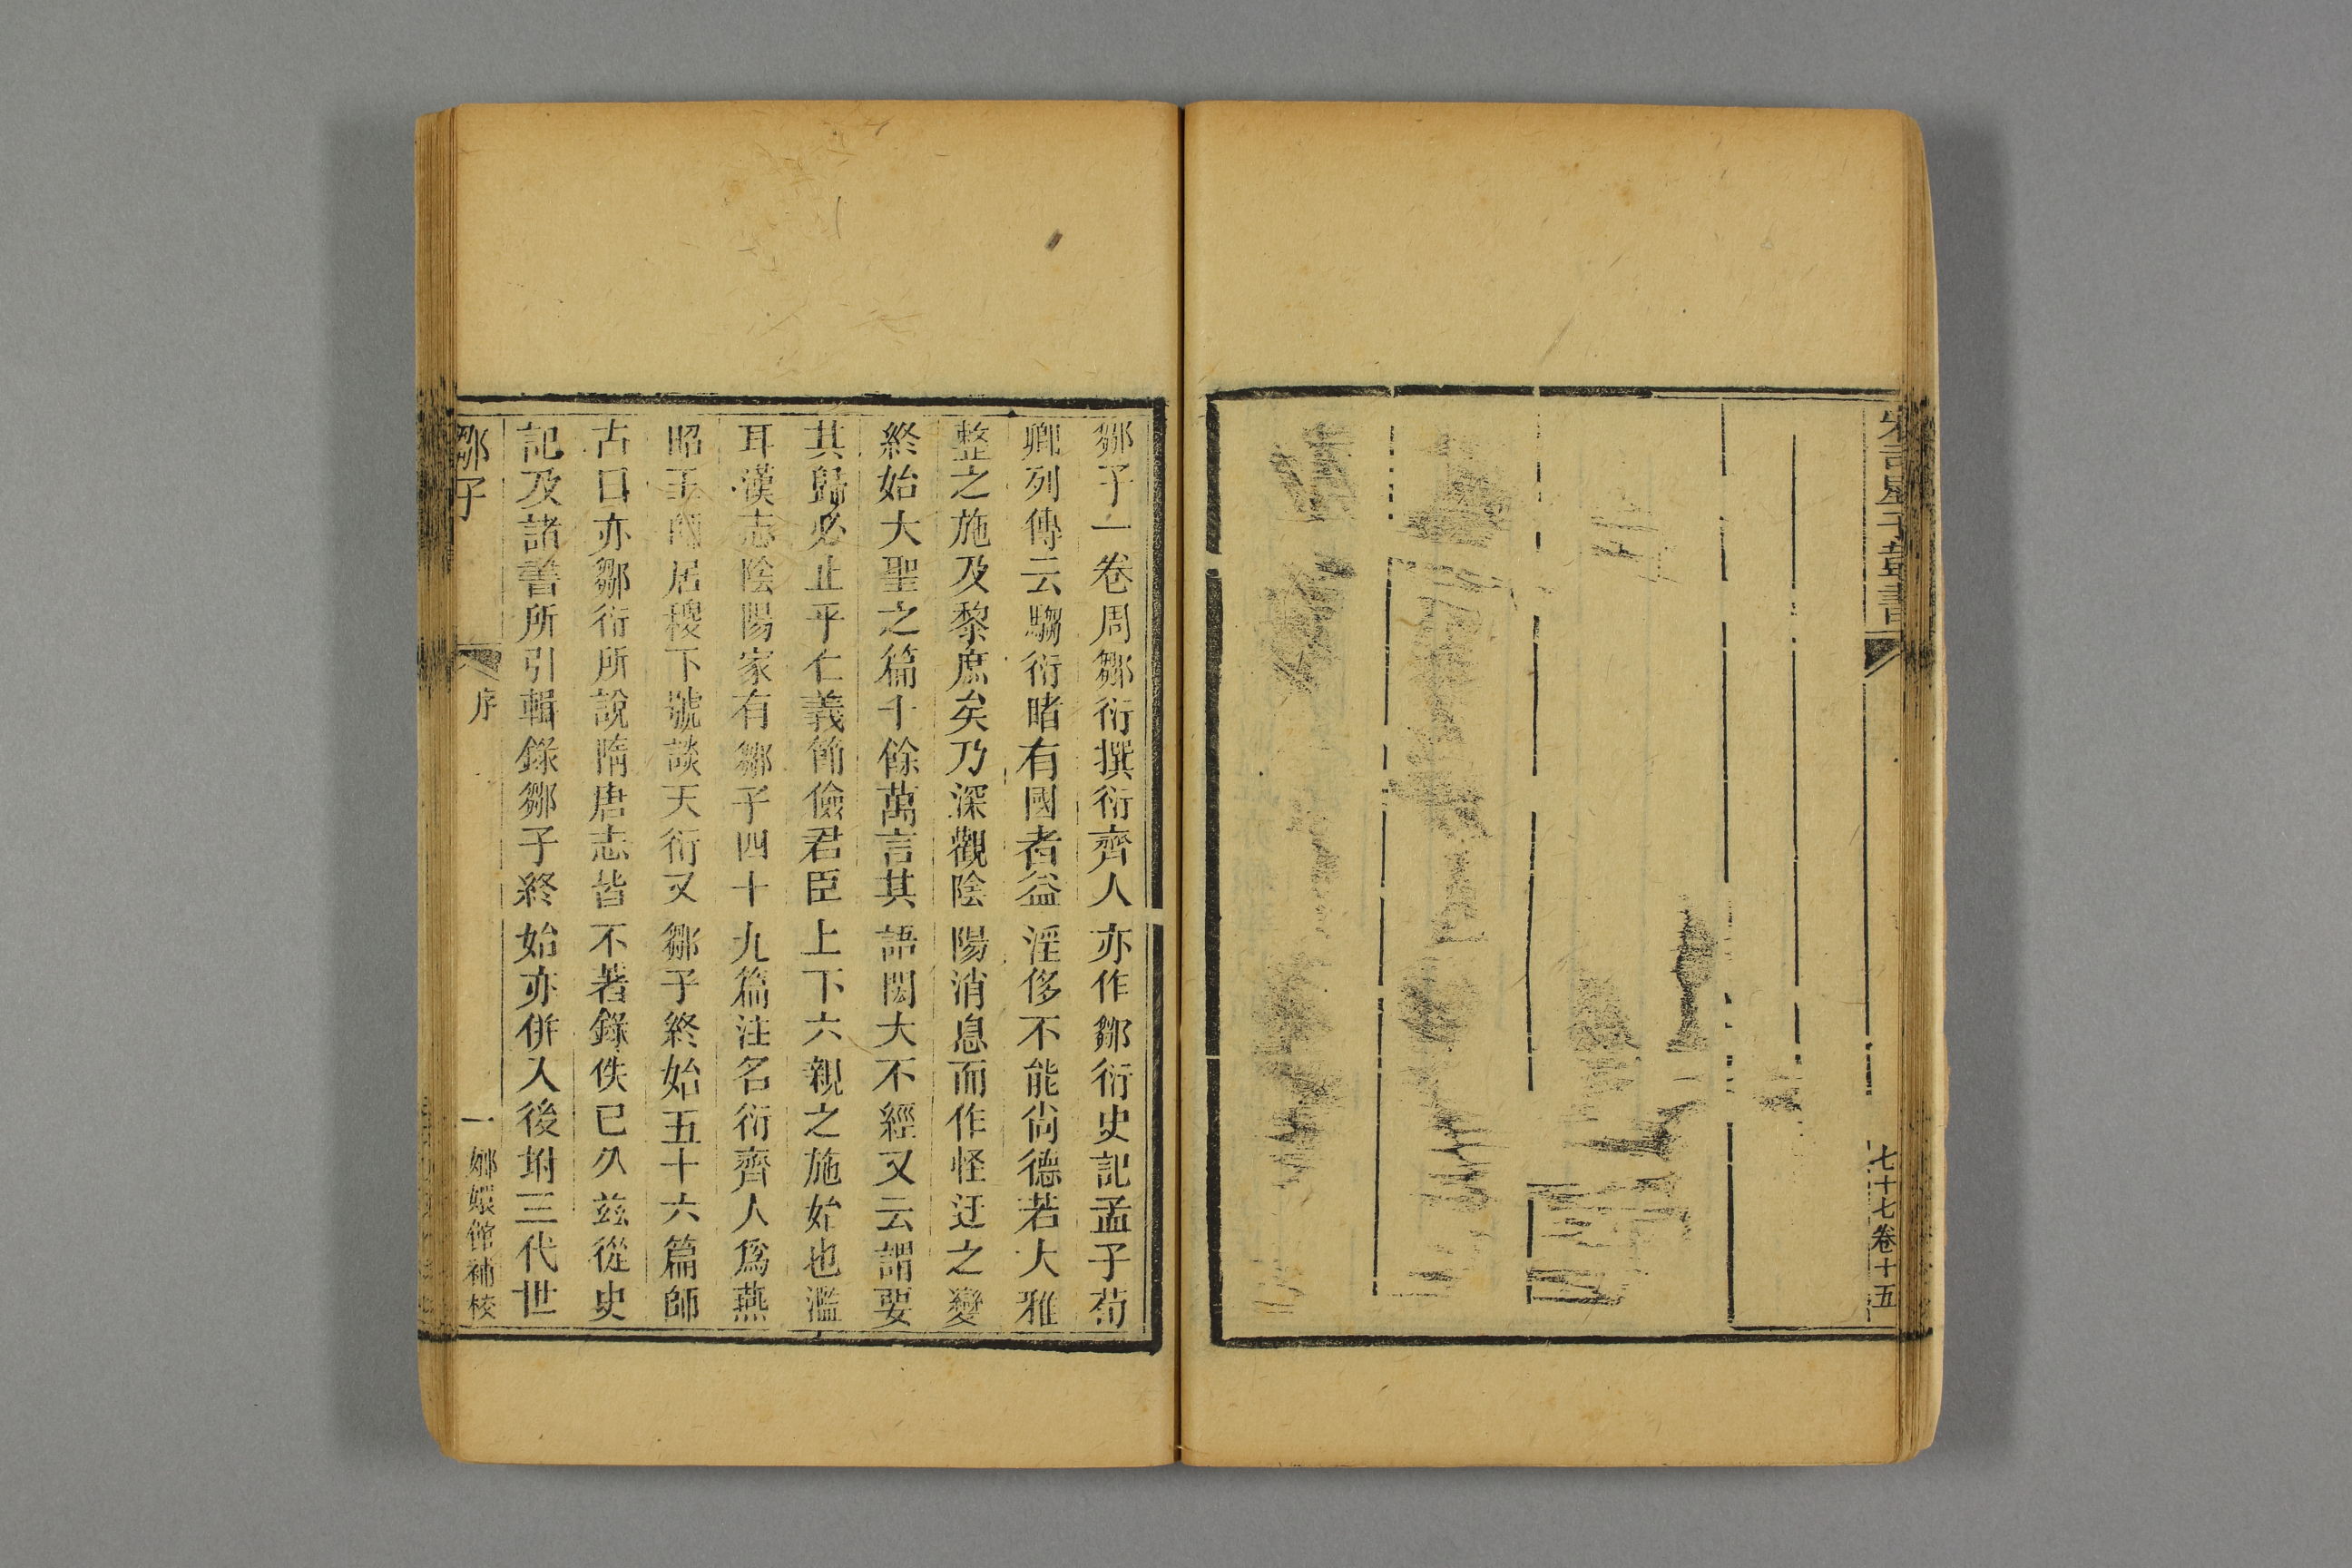 七十七卷十五
鄒子一卷周鄒衍撰衍齊人亦作鄒衍史記孟子荀
卿列傳云騶衍睹有國者益淫侈不能尙德若大雅
整之施及黎庶矣乃深觀陰陽消息而作怪迂之變
終始大聖之篇十餘萬言其語閎大不經又云謂要
其歸必止乎仁義節儉君臣上下六親之施始也濫
耳漢志陰陽家有鄒子四十九篇注名衍齊人爲燕
昭王師居稷下號談天衍又鄒子終始五十六篇師
古曰亦鄒衍所說隋唐志皆不著錄佚已久兹從史
記及諸書所引輯錄鄒子終始亦併入後坿三代世
鄒子
序
一
嫏嬛館補校